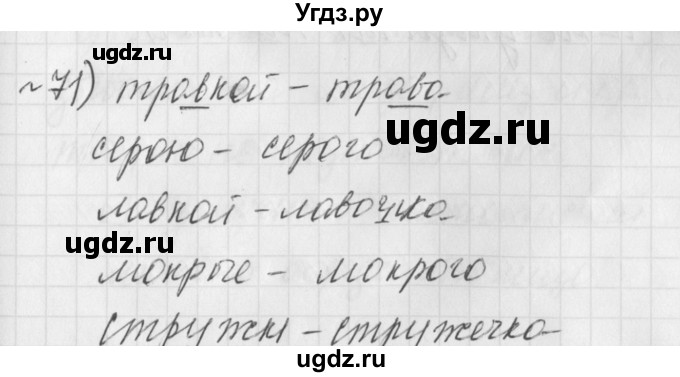 Угдз.ру
ugdz.ru
~71) травкой – трава
ugdz.ru
серою – серого
лавкой – лавочка
ugdz.ru
мокрые – мокрого
стружки – стружечка
ugdz.ru